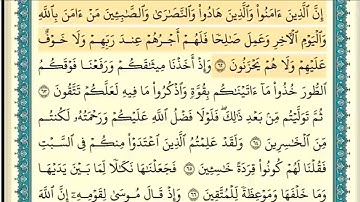 إِنَّ ٱلَّذِينَ ءَامَنُوا۟ وَٱلَّذِينَ هَادُوا۟ وَٱلنَّصَٰرَىٰ وَٱلصَّٰبِـِٔينَ مَنْ ءَامَنَ بِٱللَّهِ
وَٱلْيَوْمِ ٱلْءَاخِرِ وَعَمِلَ صَٰلِحًا فَلَهُمْ أَجْرُهُمْ عِندَ رَبِّهِمْ وَلَا خَوْفٌ
عَلَيْهِمْ وَلَا هُمْ يَحْزَنُونَ ٦٢ وَإِذْ أَخَذْنَا مِيثَٰقَكُمْ وَرَفَعْنَا فَوْقَكُمُ
ٱلطُّورَ خُذُوا۟ مَآ ءَاتَيْنَٰكُم بِقُوَّةٍ وَٱذْكُرُوا۟ مَا فِيهِ لَعَلَّكُمْ تَتَّقُونَ ٦٣
ثُمَّ تَوَلَّيْتُم مِّنۢ بَعْدِ ذَٰلِكَ ۖ فَلَوْلَا فَضْلُ ٱللَّهِ عَلَيْكُمْ وَرَحْمَتُهُۥ لَكُنتُم
مِّنَ ٱلْخَٰسِرِينَ ٦٤ وَلَقَدْ عَلِمْتُمُ ٱلَّذِينَ ٱعْتَدَوْا۟ مِنكُمْ فِى ٱلسَّبْتِ
فَقُلْنَا لَهُمْ كُونُوا۟ قِرَدَةً خَٰسِـِٔينَ ٦٥ فَجَعَلْنَٰهَا نَكَٰلًا لِّمَا بَيْنَ يَدَيْهَا
وَمَا خَلْفَهَا وَمَوْعِظَةً لِّلْمُتَّقِينَ ٦٦ وَإِذْ قَالَ مُوسَىٰ لِقَوْمِهِۦٓ إِنَّ ٱللَّهَ